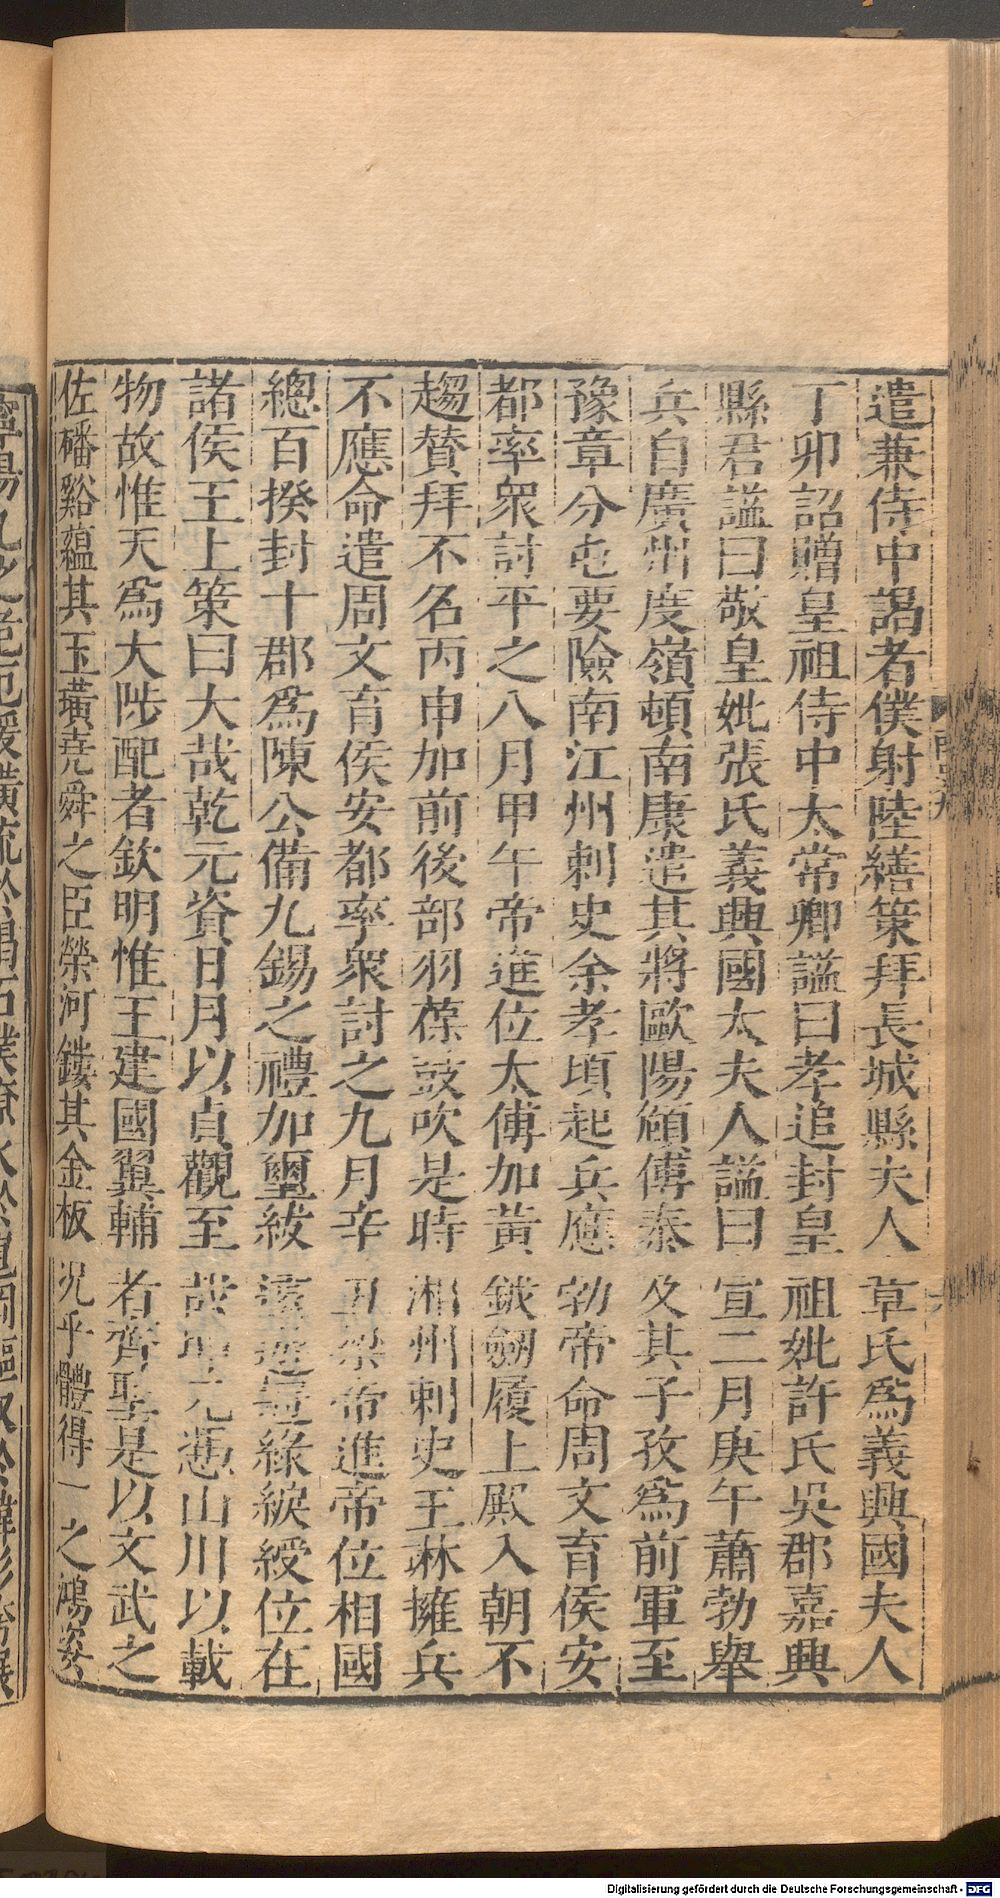 遣兼侍中謁者僕射陸繕策拜長城縣夫人章氏爲義興國夫人
丁卯詔贈皇祖侍中太常卿諡曰孝追封皇祖妣許氏吳郡嘉興
縣君諡曰敬皇妣張氏義興國太夫人諡曰宣二月庚午蕭勃舉
兵自廣州度嶺頓南康遣其將歐陽頠傅泰及其子孜爲前軍至
豫章分屯要險南江州刺史余孝頃起兵應勃帝命周文育侯安
都率衆討平之八月甲午帝進位太傅加黃鉞劒履上殿入朝不
趨贊拜不名丙申加前後部羽葆鼓吹是時湘州刺史王琳擁兵
不應命遣周文育侯安都率衆討之九月辛丑梁帝進帝位相國
總百揆封十郡爲陳公備九錫之禮加璽紱遠遊冠綠綟綬位在
諸侯王上策曰大哉乾元資日月以貞觀至哉坤元憑山川以載
物故惟天爲大陟配者欽明惟王建國翼輔者齊聖是以文武之
佐磻谿蘊其玉璜堯舜之臣榮河鏤其金板况乎體得一之鴻姿
Digitalisierung gefördert durch die Deutsche Forschungsgemeinschaft - DFG